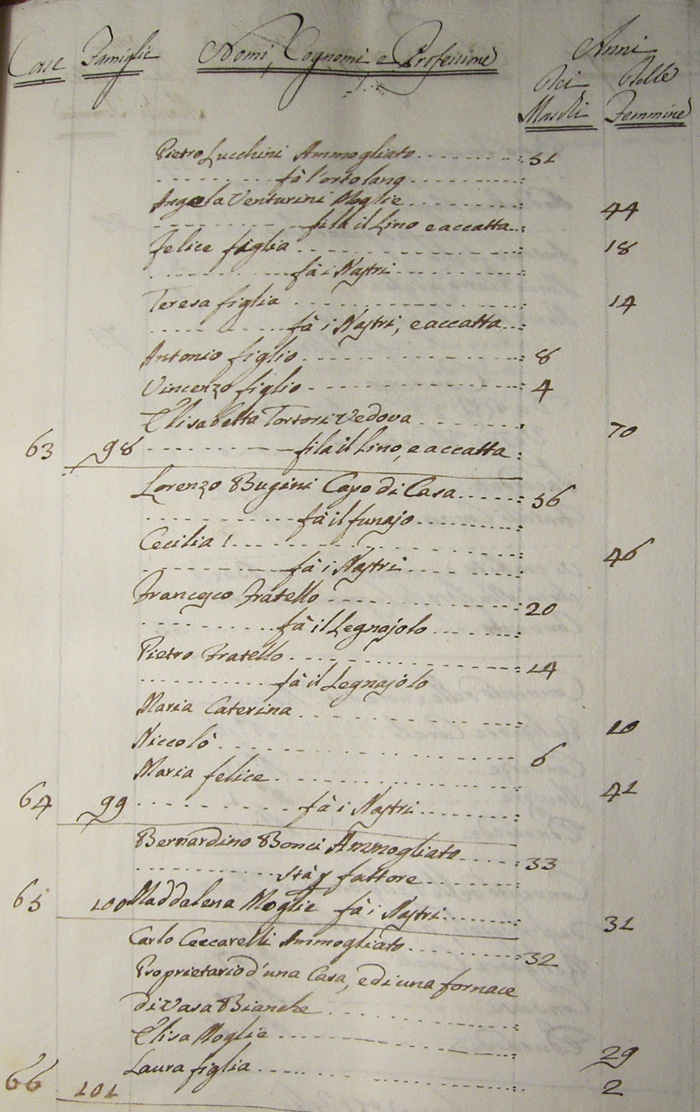 Case Famiglie Nomi, Cognomi e Professione Anni
Dei Delle
Maschi Femmine
Pietro Lucchini Ammogliato 51
fà l'ortolano
Angela Venturini Moglie 44
fila il Lino e accatta
Felice figlia 18
fà i Nastri
Teresa figlia 14
fà i Nastri, e accatta
Antonio figlio 8
Vincenzo figlio 4
Elisabetta Tortori Vedova 70
63 98 fila il Lino, e accatta
Lorenzo Bugini Capo di Casa 56
fà il funajo
Cecilia 46
fà i Nastri
Francesco Fratello 20
fà il Legnajolo
Pietro Fratello 14
fà il Legnajolo
Maria Caterina 10
Niccolò 6
Maria felice 41
64 99 fà i Nastri
Bernardino Bonci Ammogliato 33
stà p fattore
65 100 Maddalena Moglie fà i Nastri 31
Carlo Ceccarelli Ammogliato 32
Proprietario d'una Casa, e di una fornace
di Vasa Bianche
Elisa Moglie 29
Laura figlia 2
66 101